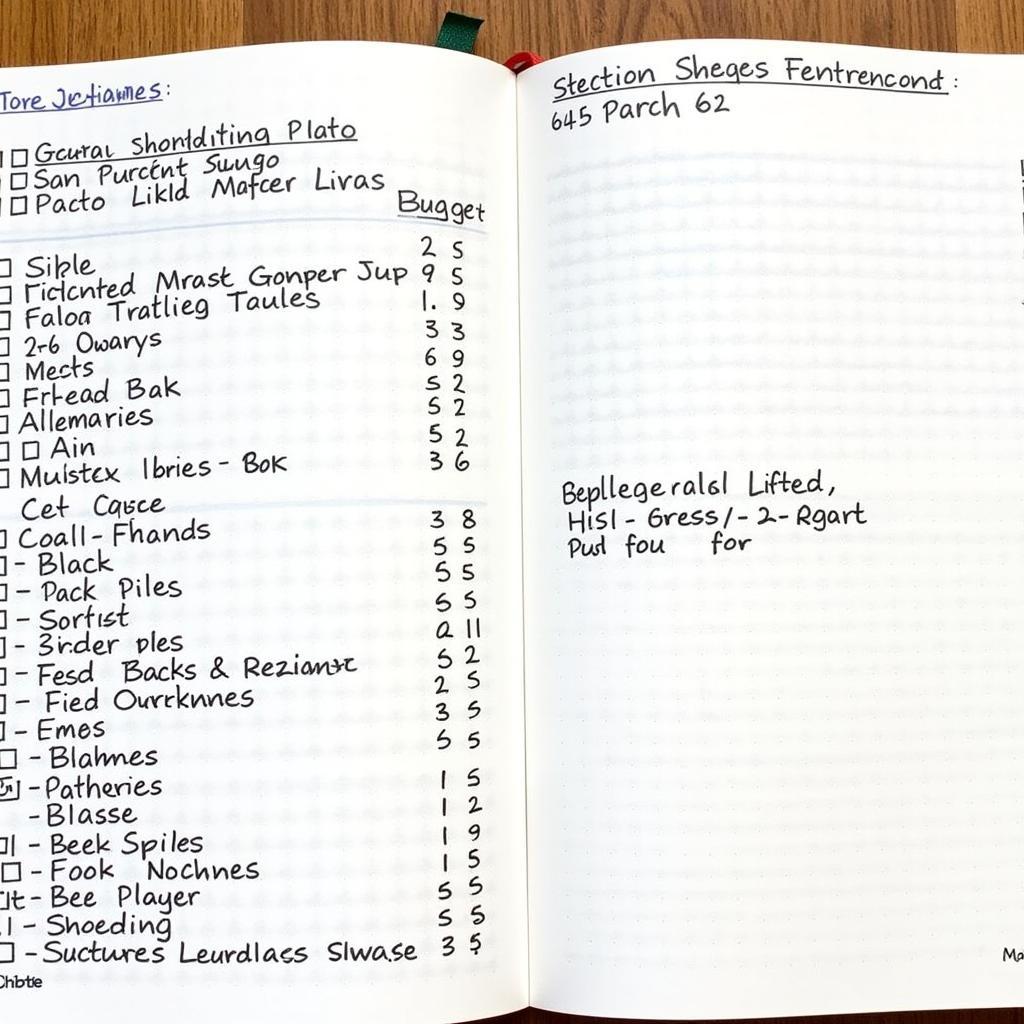 Tore Jctiaumes:
Gcurai Shontditing Plato
San Purcént Suugo
Pacto Likld Mafcer Livas
Bugget
Siple 2 5
Ficlcnted Mrast Gonper Jup 9 5
Faloa Tratlieg Taules 1. 9
2-6 Owarys 3 3
Mects 6 9
Frhead Bak 5 2
Allemaries 5 2
Ain 5 2
Muistex Ibries - Bok 3 6
Cet Cqsce
Coall-Fhands 3 8
- Black 5 5
- Pack Piles 5 5
- Sorfist 5 5
- 3irder ples 2 11
- Fesd Backs & Rezianstc 5 2
- Fied Ourrknnes 2 5
- Emes 3 5
- Blahmes 5 5
- Patheries 1 5
- Blasse 1 2
- Beek Spiles 1 9
- Fook Nochnes 1 5
- Bee Player 5 5
- Shoeding 5 5
- Suctures Leurdlass Slwase 3 5
Chbte
Stection Sheges Fentrencond:
645 Parch 62
Bepllegeralsl Lifted,
Hisl - Gress/- 2- Rgart
Pusl fou for
Ma